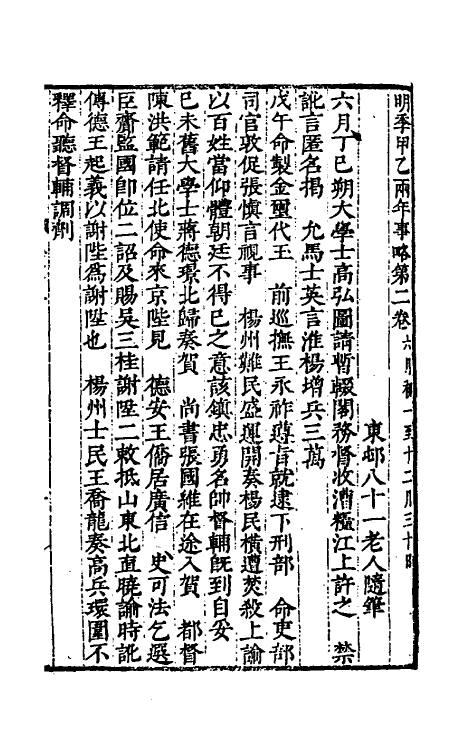 明季甲乙兩年事略第二卷六月初一至十二月三十日
東邨八十一老人隨筆
六月丁巳朔大學士高弘圖請暫輟閣務督收漕糧江上許之　禁
訛言匿名揭　允馬士英言淮楊增兵三萬
戊午命製金璽代玉　前巡撫王永祚遵旨就逮下刑部　命吏部
司官敦促張慎言視事　楊州難民盛運開奏楊民橫遭焚殺上諭
以百姓當仰體朝廷不得已之意該鎮忠勇名帥督輔旣到自妥
已未舊大學士蔣德璟北歸奏賀　尚書張國維在途入賀　都督
陳洪範請任北使命來京陛見　德安王僑居廣信　史可法乞選
臣齎監國卽位二詔及賜吳三桂謝陞二敕抵山東北直曉諭時訛
傳德王起義以謝陞爲謝陞也　楊州士民王喬龍奏高兵環圍不
釋命聽督輔調劑